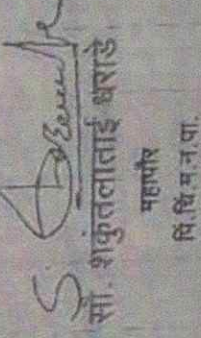 सौ. शकुंतलाताई धराडे
महापौर
पिं.चिं.म.न.पा.